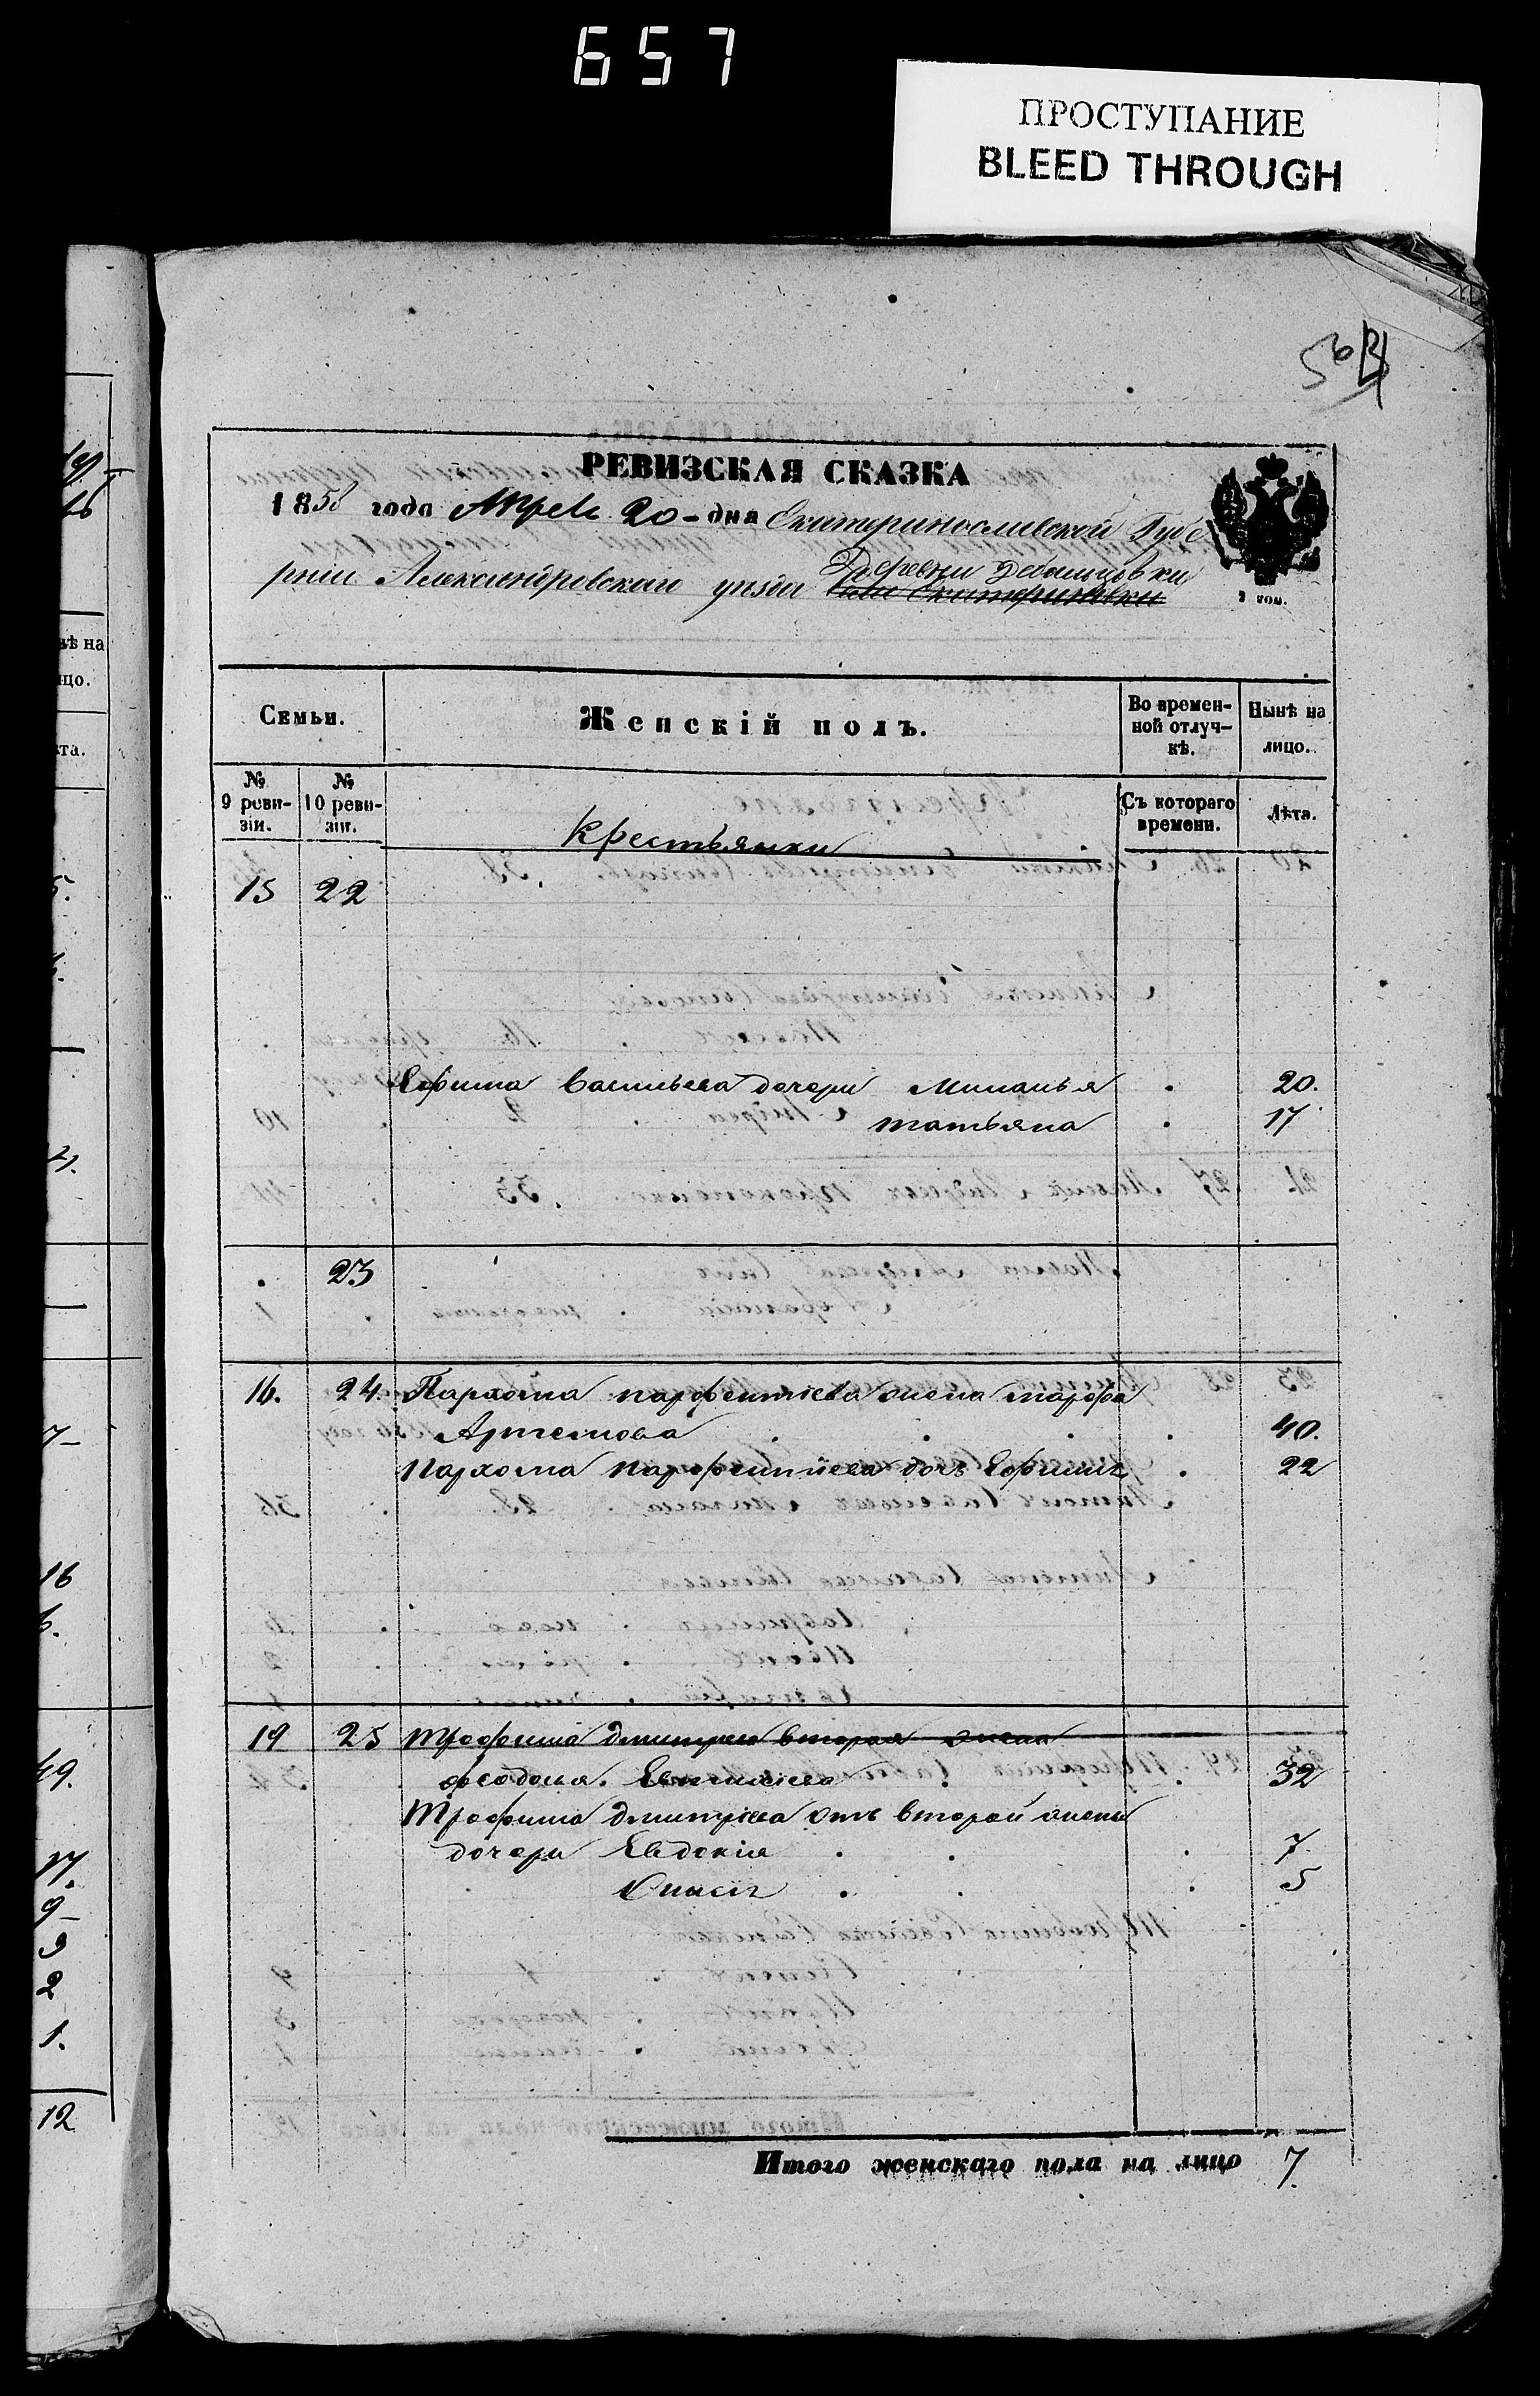 657
ПРОСТУПАНИЕ
BLEED THROUGH
56
РЕВИЗСКАЯ СКАЗКА
1858 года Апреля 20 - дня Екатеринославской Губе
рніи Александровскаго уезда Деревни Дебальцовки
села Екатериновки
2 коп.
Семьи.
Женскій полъ.
Во времен-
ной отлуч-
кѣ.
Нынѣ на
лицо.
№
9 реви-
зіи.
№
10 реви-
зіи.
Съ котораго
времени.
Лѣта.
Крестьянки
15 22
Ефима Васильева дочери Миланья 20.
татьяна 17
23
16. 24. Пархома парфентіева жена марфа
Артемова 40.
пархома парфентіева дочь Ефимія 22
19 25 Трофима дмитрева вторая жена
феодосья 32
Трофима дмитріева отъ второй жены
дочери Евдокія 7
5
Итого женскаго пола на лицо 7.
ѣ на
цо.
та.
16
49.
17.
9
3
2
1.
12